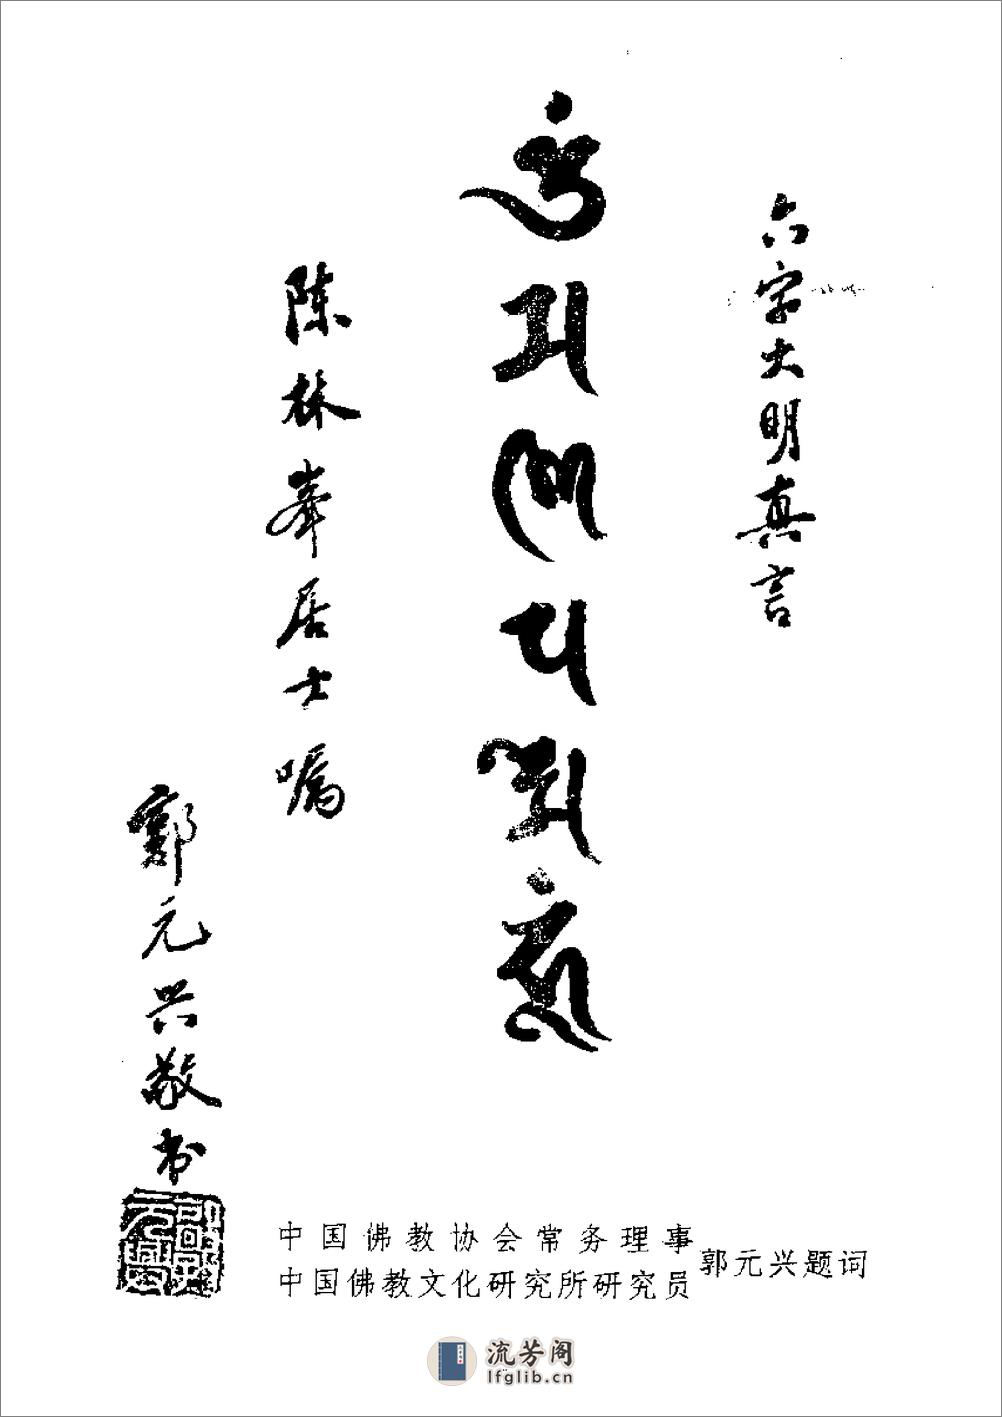 六字大明真言
𑖌𑖼 𑖦 𑖜𑖰 𑖢 𑖟𑖿𑖦𑖸 𑖮𑖳𑖽
陈林峯居士嘱
郭元兴敬书
中国佛教协会常务理事
中国佛教文化研究所研究员
郭元兴题词
流芳阁
lfglib.cn